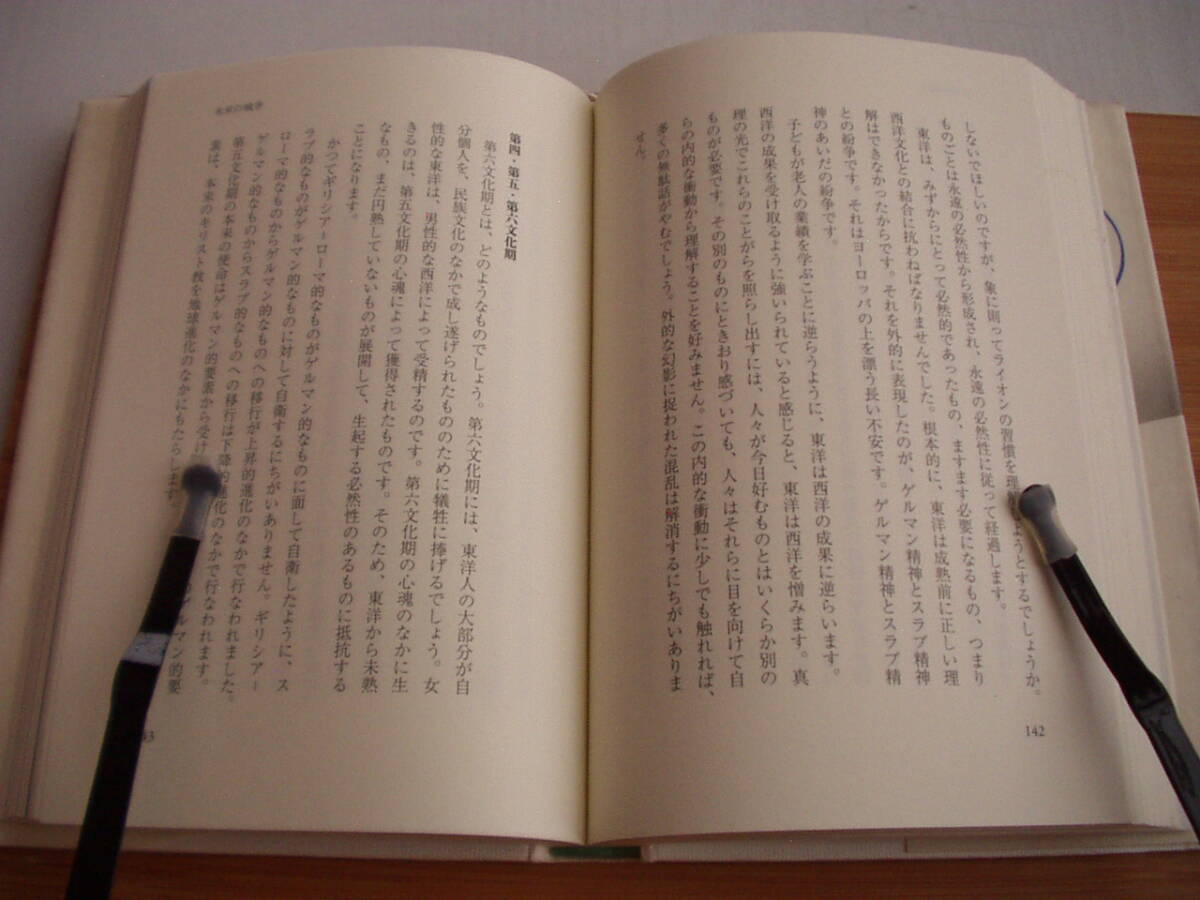 しないでほしいのですが、象に則ってライオンの習慣を理ようとするでしょうか。
ものごとは永遠の必然性から形成され、永遠の必然性に従って経過します。
東洋は、みずからにとって必然的であったもの、ますます必要になるもの、つまり
西洋文化との結合に抗わねばなりませんでした。根本的に、東洋は成熟前に正しい理
解はできなかったからです。それを外的に表現したのが、ゲルマン精神とスラブ精神
との紛争です。それはヨーロッパの上を漂う長い不安です。ゲルマン精神とスラブ精
神のあいだの紛争です。
子どもが老人の業績を学ぶことに逆らうように、東洋は西洋の成果に逆らいます。
西洋の成果を受け取るように強いられていると感じると、東洋は西洋を憎みます。真
理の光でこれらのことがらを照らし出すには、人々が今日好むものとはいくらか別の
ものが必要です。その別のものにときおり感づいても、人々はそれらに目を向けて自
らの内的な衝動から理解することを好みません。この内的な衝動に少しでも触れれば、
多くの無駄話がやむでしょう。外的な幻影に捉われた混乱は解消するにちがいありま
せん。
142
未来の戦争
第四・第五・第六文化期
第六文化期とは、どのようなものでしょう。第六文化期には、東洋人の大部分が自
分個人を、民族文化のなかで成し遂げられたもののために犠牲に捧げるでしょう。女
性的な東洋は、男性的な西洋によって受精するのです。第六文化期の心魂のなかに生
きるのは、第五文化期の心魂によって獲得されたものです。そのため、東洋から未熟
なもの、まだ円熟していないものが展開して、生起する必然性のあるものに抵抗する
ことになります。
かつてギリシアーローマ的なものがゲルマン的なものに面して自衛したように、ス
ラブ的なものがゲルマン的なものに対して自衛するにちがいありません。ギリシアー
ローマ的なものからゲルマン的なものへの移行が上昇的進化のなかで行なわれました。
ゲルマン的なものからスラブ的なものへの移行は下降的進化のなかで行なわれます。
第五文化期の本来の使命はゲルマン的要素から受けゲルマン的要
素は、本来のキリスト教を地球進化のなかにもたらします
43